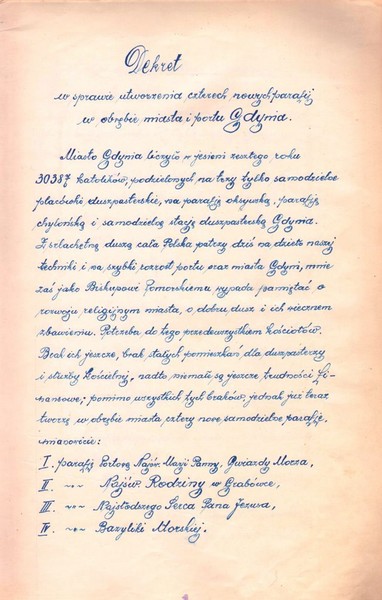 Dekret
w sprawie utworzenia czterech nowych parafij
w obrębie miasta i portu Gdynia.
Miasto Gdynia liczyło w jesieni zeszłego roku
30387 katolików, podzielonych na trzy tylko samodzielne
placówki duszpasterskie, na parafję oksywską, parafję
chylońską i samodzielną stację duszpasterską Gdynia.
Z szlachetną dumą cała Polska patrzy dziś na dzieło naszej
techniki i na szybki rozrost portu oraz miasta Gdyni, mnie
zaś jako Biskupowi Pomorskiemu wypada pamiętać o
rozwoju religijnym miasta, o dobru dusz i ich wiecznem
zbawieniu. Potrzeba do tego przedewszystkiem kościołów.
Brak ich jeszcze, brak stałych pomieszkań dla duszpasterzy
i służby kościelnej, nadto niemałe są jeszcze trudności fi-
nansowe; pomimo wszystkich tych braków, jednak już teraz
tworzę w obrębie miasta cztery nowe samodzielne parafje,
mianowicie:
I. parafję Portową Najśw. Marji Panny, Gwiazdy Morza,
II. -"- Najśw. Rodziny w Grabówce,
III. -"- Najsłodszego Serca Pana Jezusa,
IV. -"- Bazyliki Morskiej.